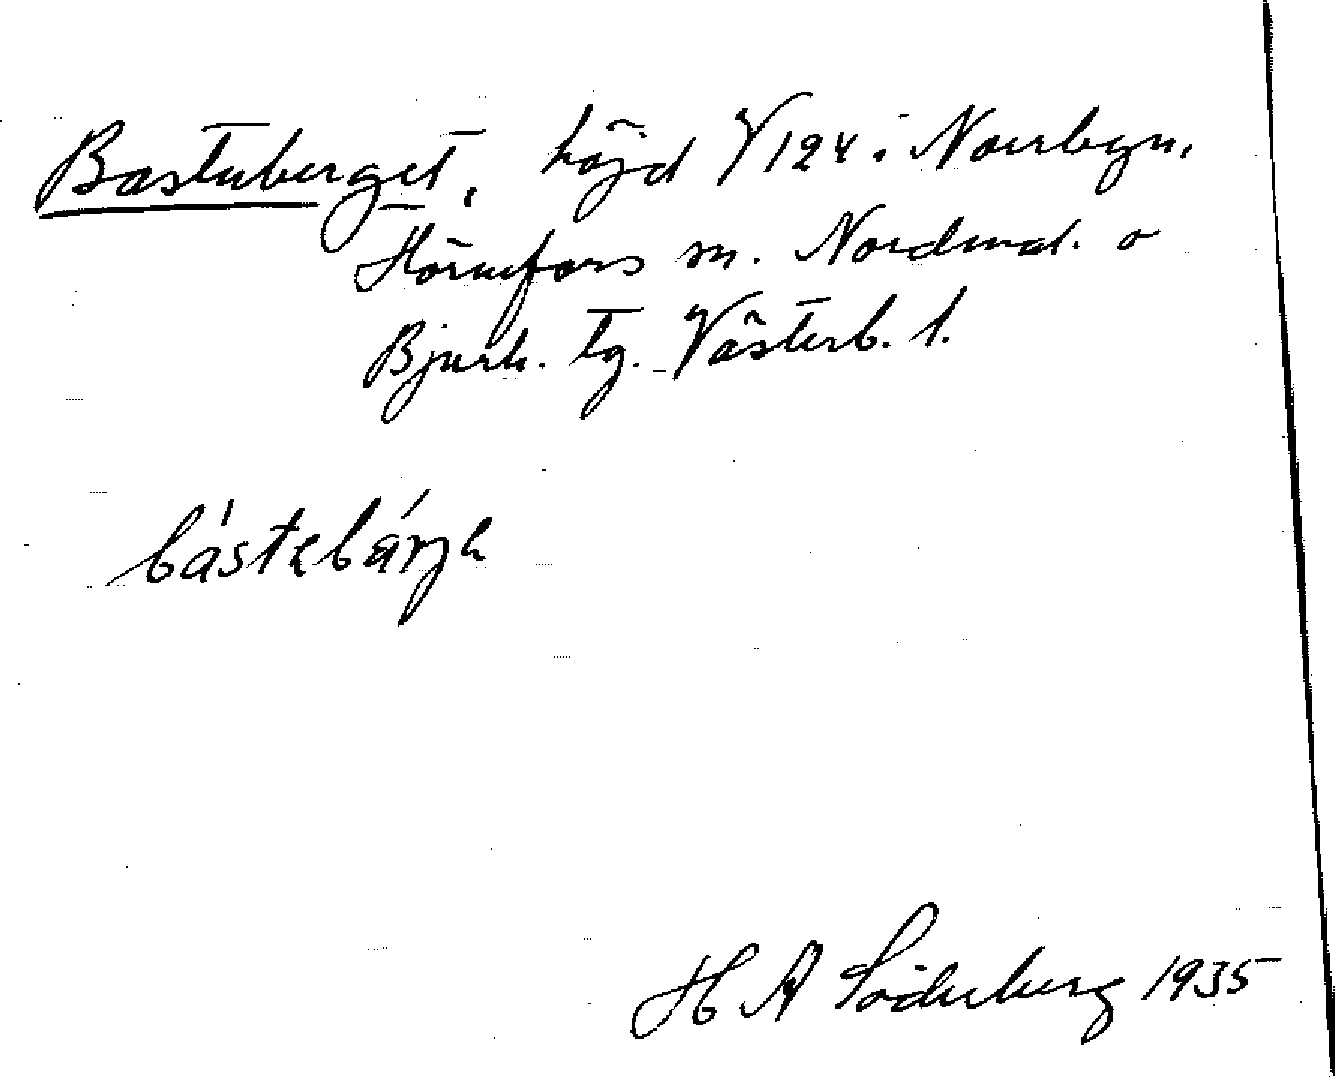 Bastuberget, höjd V 124 i Norrbyn,
Hörnefors sn. Nordmal. o
Bjurh. tg. Västerb. l.
bástebárje
H A Söderberg 1935